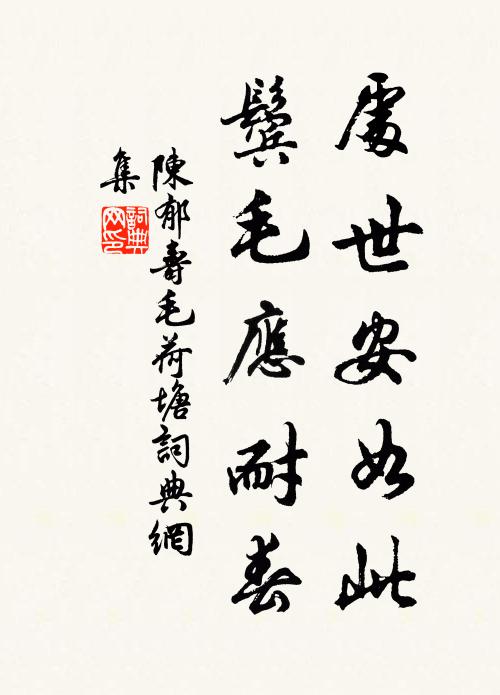 處世安如此
鬓毛應耐春
陳郁壽毛荷塘詞典網
集
詞典
网印